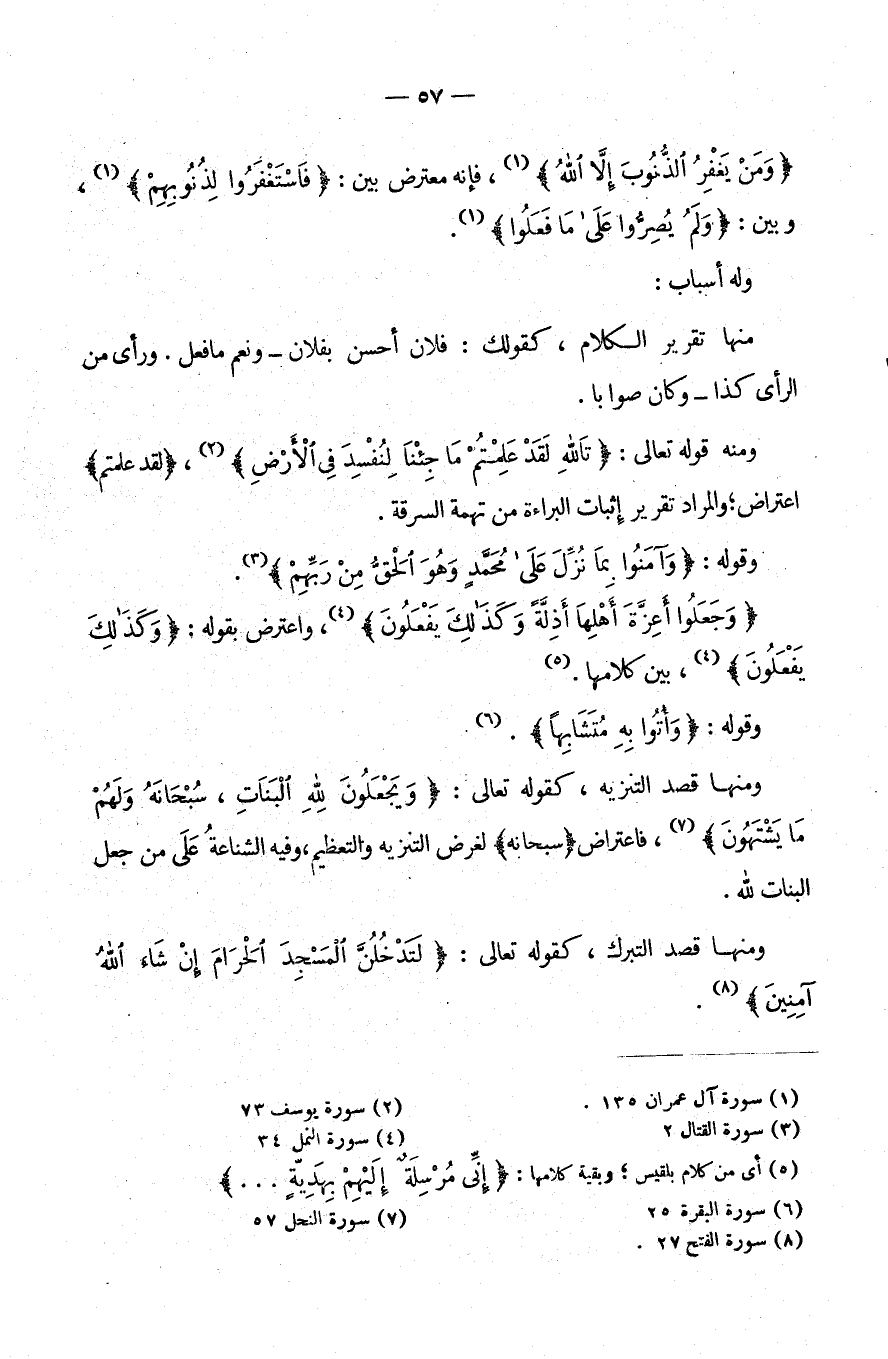 — ٥٧ —
﴿ وَمَنْ يَغْفِرُ ٱلذُّنُوبَ إِلَّا ٱللهُ ﴾ (١) ، فإنه معترض بين : ﴿ فَاسْتَغْفَرُوا لِذُنُوبِهِمْ ﴾ (١) ،
و بين : ﴿ وَلَمْ يُصِرُّوا عَلَىٰ مَا فَعَلُوا ﴾ (١) .
وله أسباب :
منها تقرير الـكلام ، كقولك : فلان أحسن بفلان ــ ونعم مافعل . ورأى من
الرأى كذا ــ وكان صوابا .
ومنه قوله تعالى : ﴿ تَاللهِ لَقَدْ عَلِمْتُمْ مَا جِئْنَا لِنُفْسِدَ فِى ٱلْأَرْضِ ﴾ (٢) ، ﴿لقد علمتم﴾
اعتراض؛والمراد تقرير إثبات البراءة من تهمة السرقة .
وقوله : ﴿ وَآمَنُوا بِمَا نُزِّلَ عَلَىٰ مُحَمَّدٍ وَهُوَ ٱلْحَقُّ مِنْ رَبِّهِمْ ﴾(٣) .
﴿ وَجَعَلُوا أَعِزَّةَ أَهْلِهَا أَذِلَّةً وَكَذَٰلِكَ يَفْعَلُونَ ﴾ (٤) ، واعترض بقوله : ﴿ وَكَذَٰلِكَ
يَفْعَلُونَ ﴾ (٤) ، بين كلامها .(٥)
وقوله : ﴿ وَأُتُوا بِهِ مُتَشَابِهاً ﴾ . (٦)
ومنهـا قصد التنزيه ، كقوله تعالى : ﴿ وَيَجْعَلُونَ لِلهِ ٱلْبَنَاتِ ، سُبْحَانَهُ وَلَهُمْ
مَا يَشْتَهُونَ ﴾ (٧) ، فاعتراض﴿سبحانه﴾ لغرض التنزيه والتعظيم،وفيه الشناعةُ عَلَى من جعل
البنات لله .
ومنهـا قصد التبرك ، كقوله تعالى : ﴿ لَتَدْخُلُنَّ ٱلْمَسْجِدَ ٱلْحَرَامَ إِنْ شَاء ٱللهُ
آمِنِينَ ﴾ (٨) .
(١) سورة آل عمران ١٣٥ . (٢) سورة يوسف ٧٣
(٣) سورة القتال ٢ (٤) سورة النمل ٣٤
(٥) أى من كلام بلقيس ؛ وبقية كلامها : ﴿ إِنِّى مُرْسِلَةٌ إِلَيْهِمْ بِهَدِيَّةٍ . . . ﴾
(٦) سورة البقرة ٢٥ (٧) سورة النحل ٥٧
(٨) سورة الفتح ٢٧ .